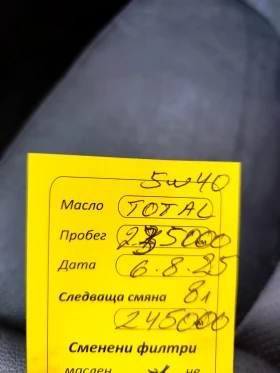 5w40
Масло TOTAL
Пробег 235000 км
Дата 6.8.25
Следваща смяна 8л
245000 км
Сменени филтри
маслен не